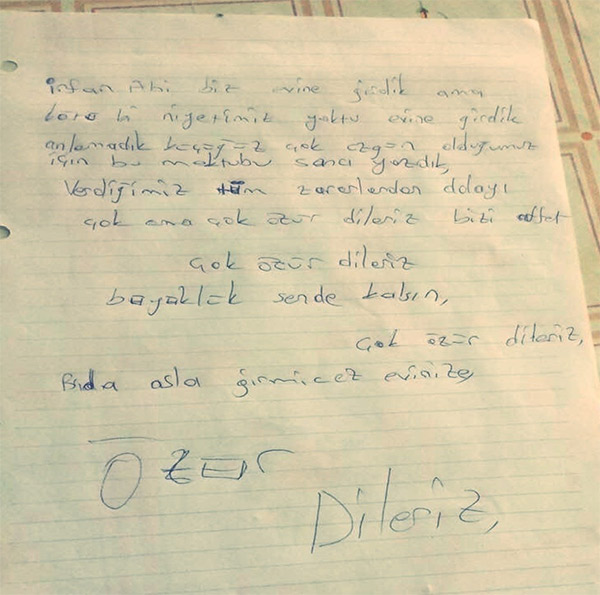 irfan Abi biz evine girdik ama
kötü bi niyetimiz yoktu evine girdik
anlamadık çok olduğumuz
için bu mektubu sana yazdık,
Verdiğimiz tüm zararlardan dolayı
çok ama çok özür dileriz bizi affet
çok özür dileriz
büyüklük sende kalsın,
çok özür dileriz,
Bida asla girmicez evinize,
Özür
Dileriz,